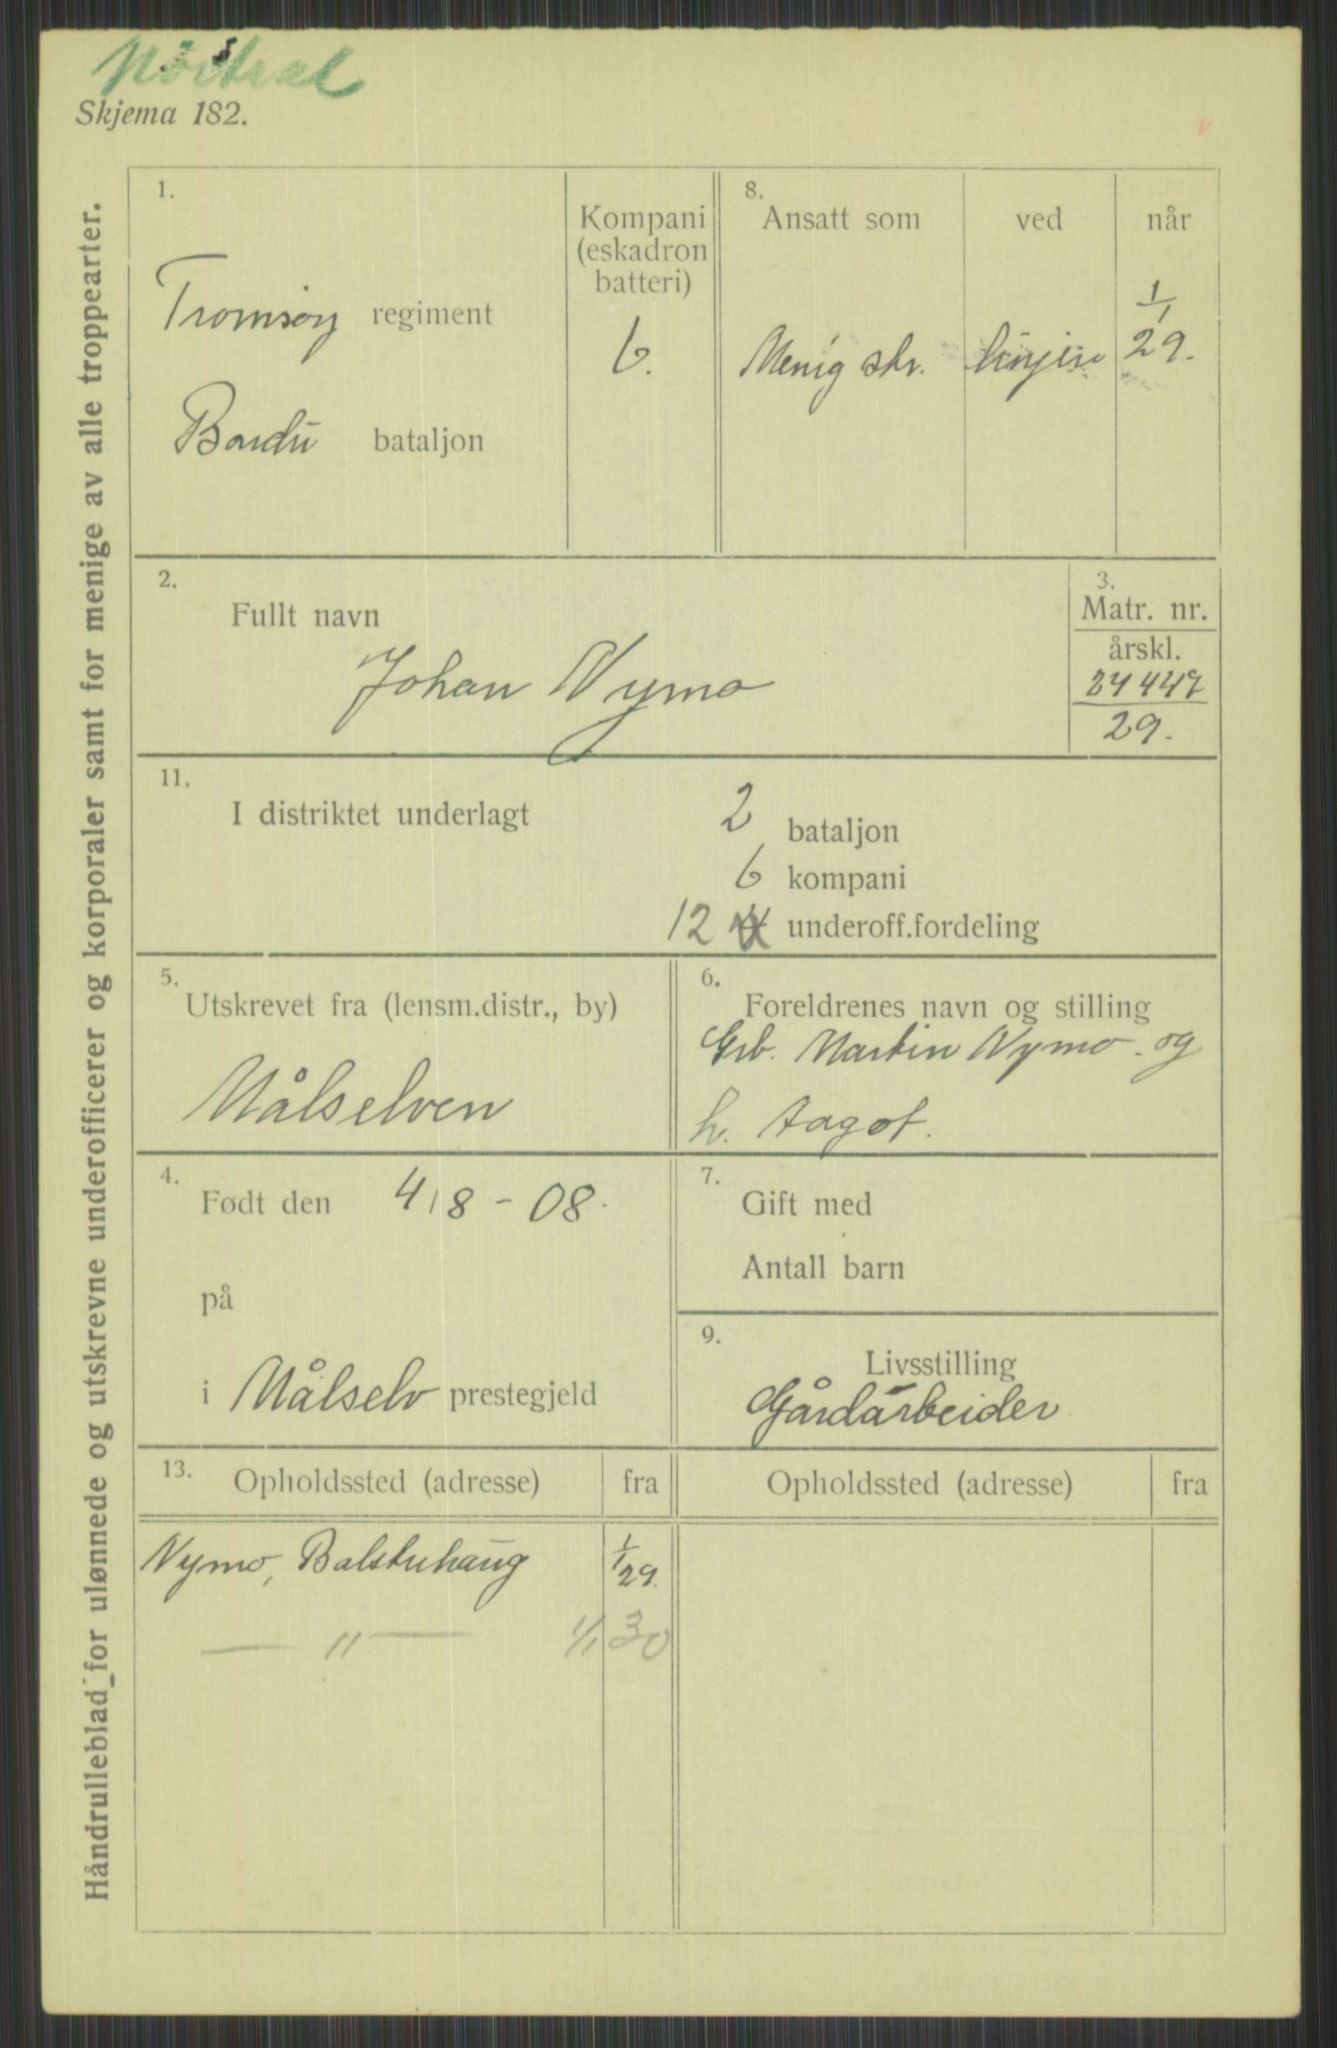 Skjema 182.
Håndrulleblad for ulønnede og utskrevne underofficerer og korporaler samt for menige av alle troppearter.
1.
Tromsøy regiment
Bardu bataljon
Kompani
(eskadron
batteri)
6.
8.
Ansatt som ved når
Menig skr. linjen 1/1 29.
2.
Fullt navn
Johan Nymo
3.
Matr. nr.
årskl.
29.
11.
I distriktet underlagt
2 bataljon
6 kompani
12 underoff.fordeling
5.
Utskrevet fra (lensm.distr., by)
Målselven
6.
Foreldrenes navn og stilling
Grb. Martin Nymo og
h. Aagot.
4.
Født den 4/8 - 08.
på
i Målselv prestegjeld
7.
Gift med
Antall barn
9.
Livsstilling
Gårdarbeider
13.
Opholdssted (adresse) fra Opholdssted (adresse) fra
Nymo, Balstuhaug 1/1 29.
— " — 1/1 30